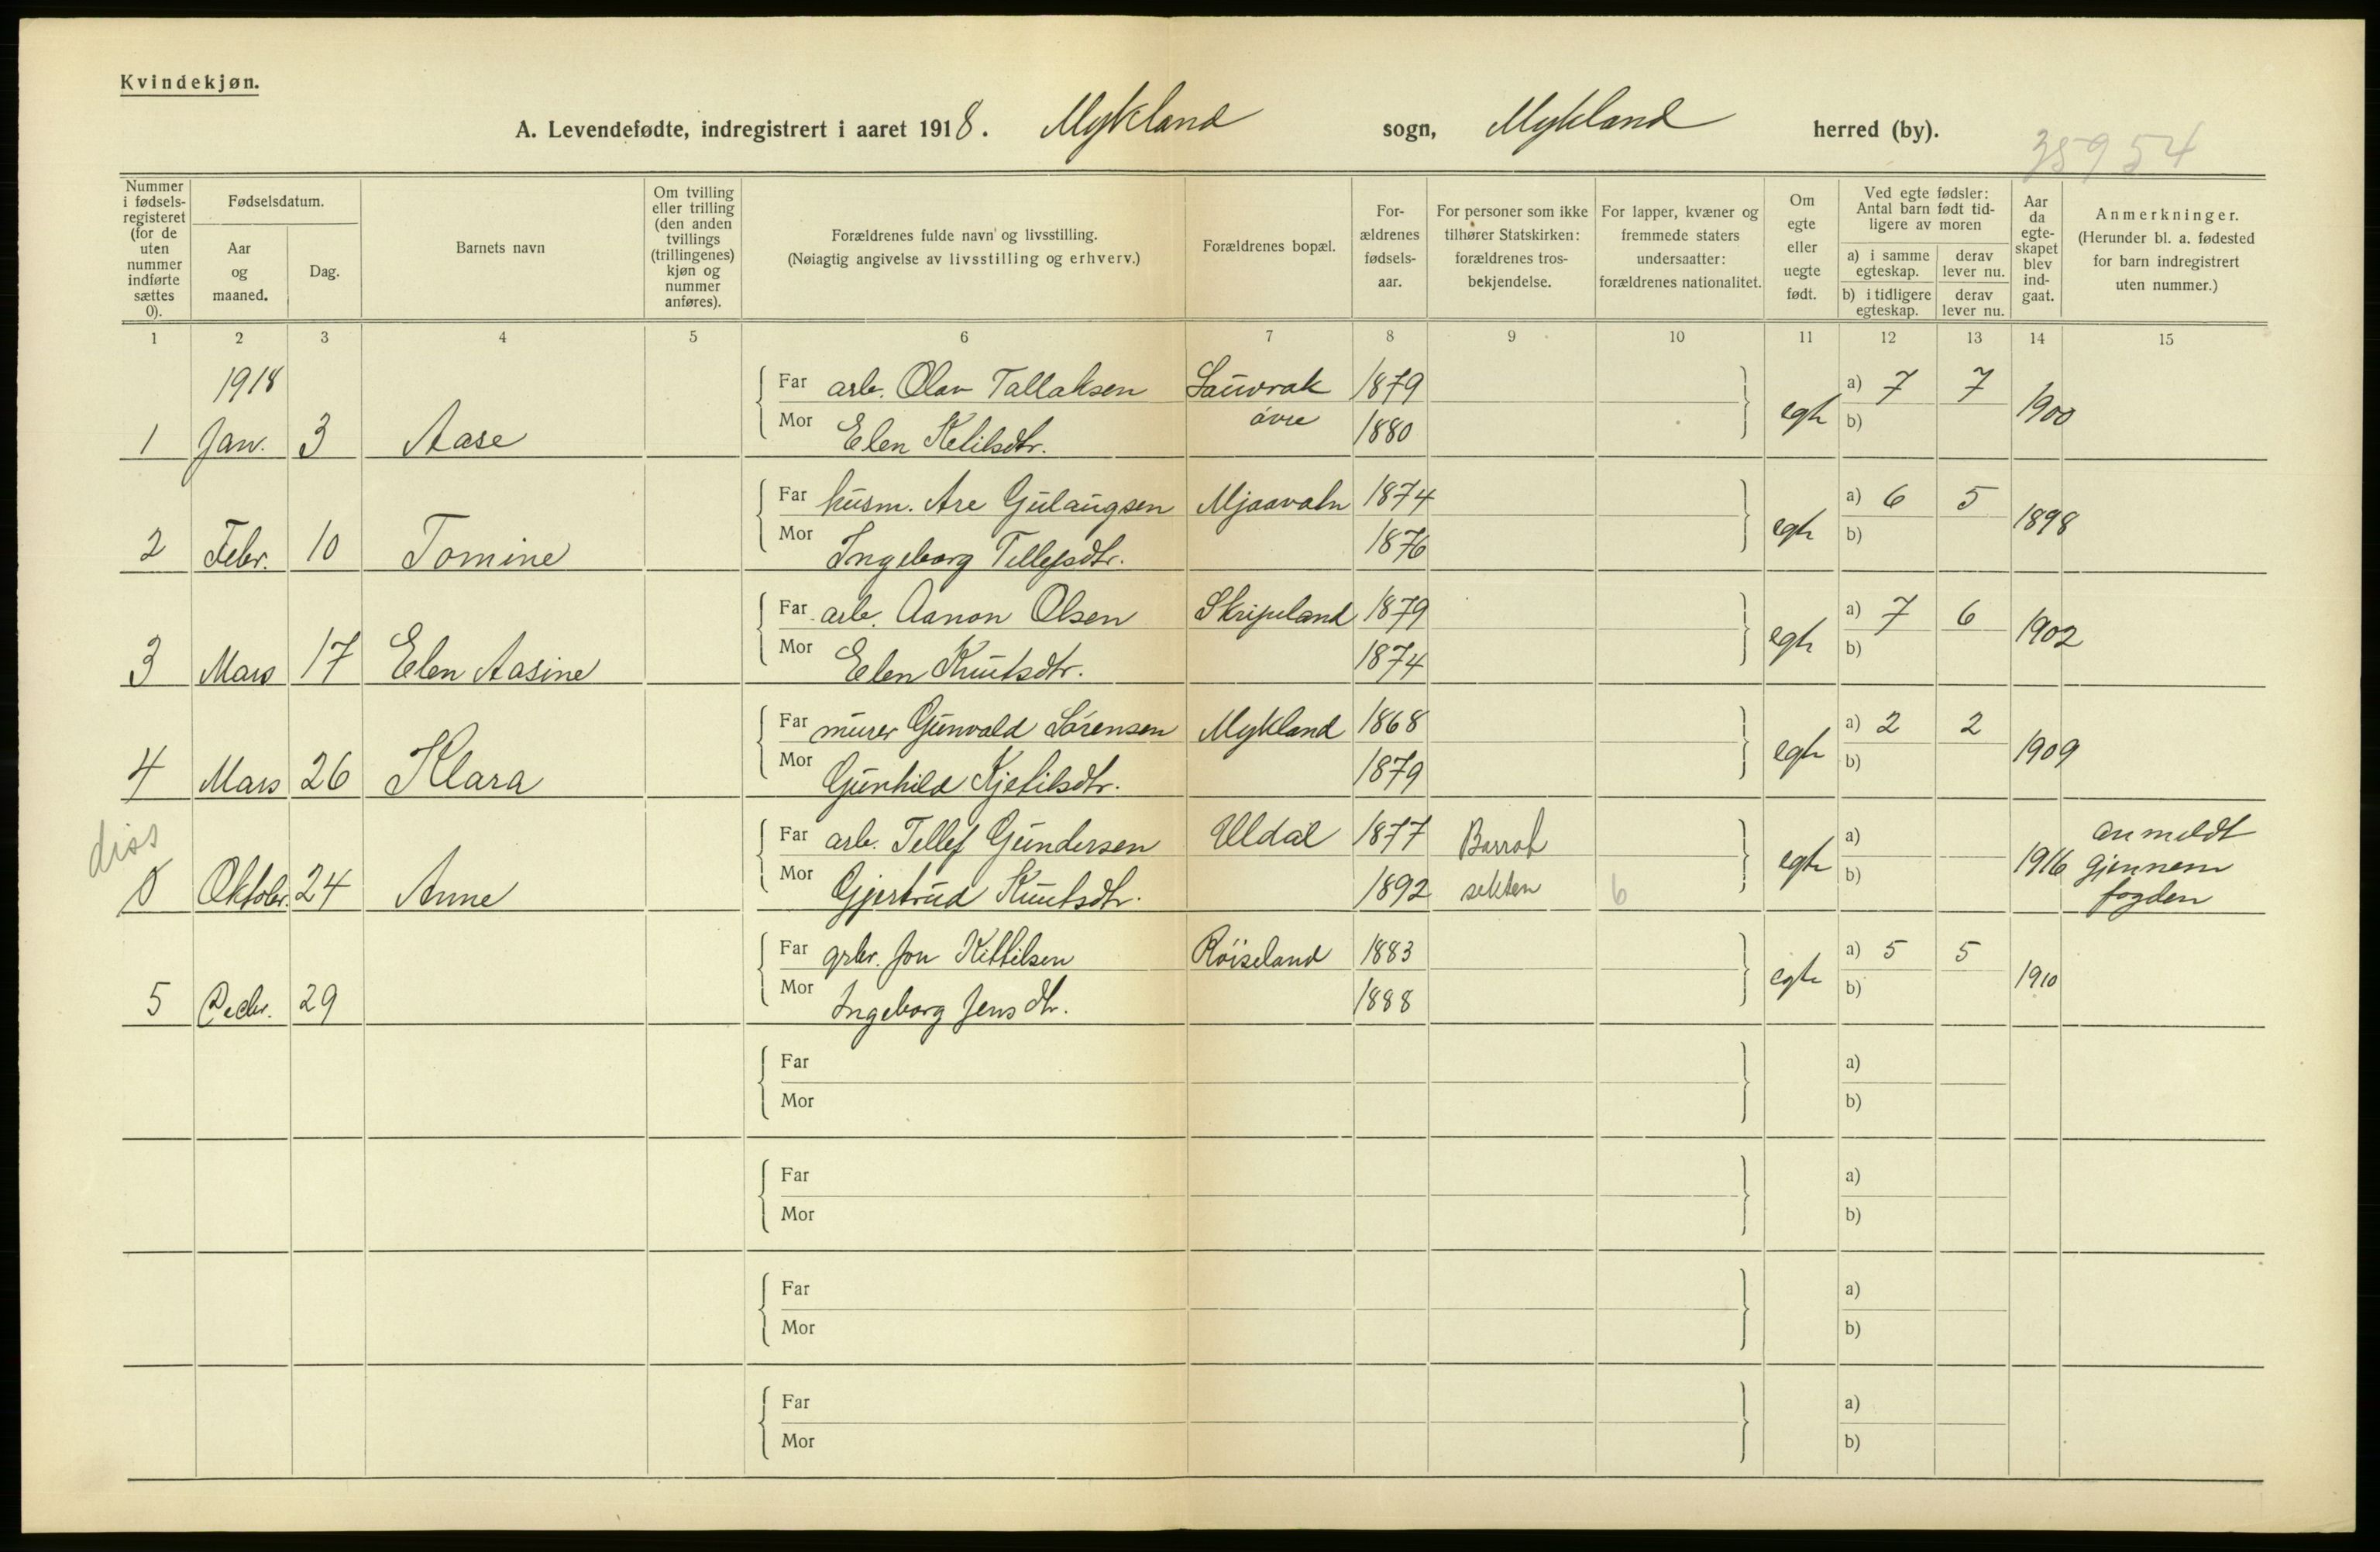 Kvindekjøn.
A. Levendefødte, indregistrert i aaret 1918. Mykland sogn, Mykland herred (by).
35954
Nummer i fødsels-registeret (for de uten nummer indførte sættes 0).
Fødselsdatum.
Aar og maaned.
Dag.
Barnets navn
Om tvilling eller trilling (den anden tvillings (trillingenes) kjøn og nummer anføres).
Forældrenes fulde navn og livsstilling.
(Nøiagtig angivelse av livsstilling og erhverv.)
Forældrenes bopæl.
For-ældrenes fødsels-aar.
For personer som ikke tilhører Statskirken: forældrenes tros-bekjendelse.
For lapper, kvæner og fremmede staters undersaatter: forældrenes nationalitet.
Om egte eller uegte født.
Ved egte fødsler: Antal barn født tid-ligere av moren
a) i samme egteskap. derav lever nu.
b) i tidligere egteskap. derav lever nu.
Aar da egte-skapet blev ind-gaat.
Anmerkninger.
(Herunder bl. a. fødested for barn indregistrert uten nummer.)
1 2 3 4 5 6 7 8 9 10 11 12 13 14 15
1918 Far arb. Olav Tallaksen Sauvrak 1879 a) 7 7
1 Jan. 3 Aase Mor Elen Ketilsdtr. øvre 1880 egte b) 1900
Far husm. Are Gulaugsen Mjaavatn 1874 a) 6 5
2 Febr. 10 Tomine Mor Ingeborg Tellefsdtr. 1876 egte b) 1898
Far arb. Aanon Olsen Skripeland 1879 a) 7 6
3 Mars 17 Elen Aasine Mor Elen Knutsdtr. 1874 egte b) 1902
Far murer Gunvald Sørensen Mykland 1868 a) 2 2
4 Mars 26 Klara Mor Gunhild Kjetilsdtr. 1879 egte b) 1909
diss Far arb. Tellef Gundersen Uldal 1877 Barrat a) anmeldt
0 Oktobr. 24 Anne Mor Gjertrud Knutsdtr. 1892 sekten 6 egte b) 1916 gjennem
fogden
Far grbr. Jon Kittilsen Røiseland 1883 a) 5 5
5 Decbr. 29 Mor Ingeborg Jensdtr. 1888 egte b) 1910
Far a)
Mor b)
Far a)
Mor b)
Far a)
Mor b)
Far a)
Mor b)